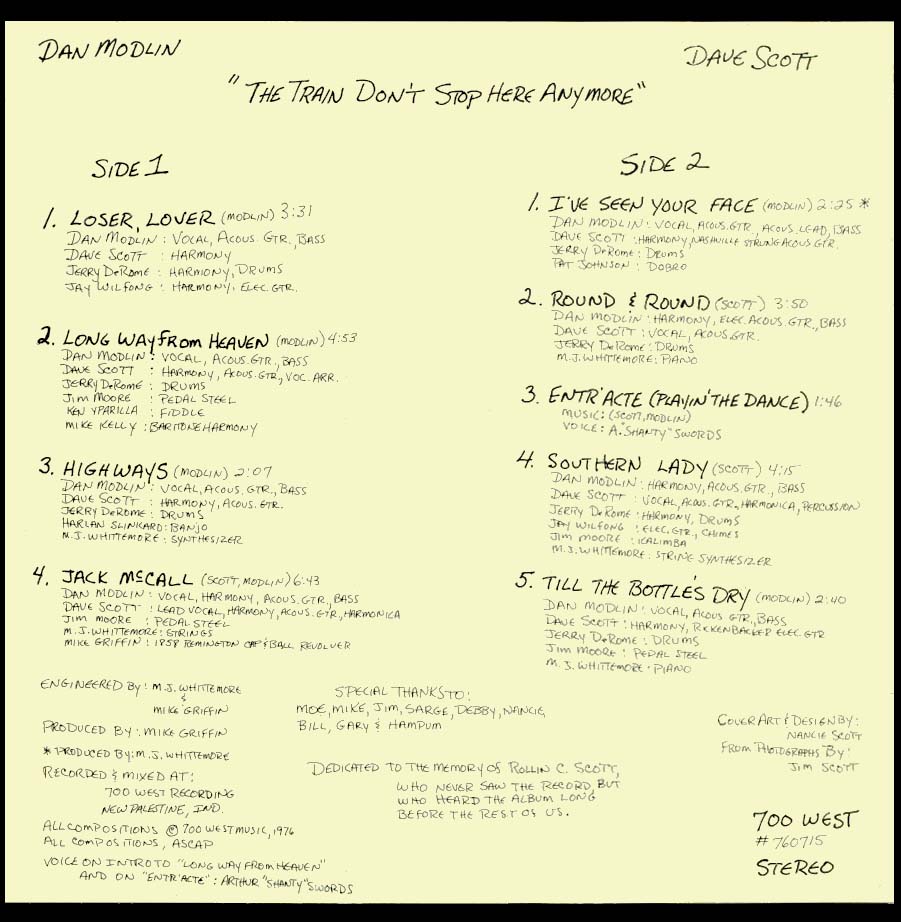 DAN MODLIN
DAVE SCOTT
"THE TRAIN DON'T STOP HERE ANYMORE"
SIDE 1
1. LOSER, LOVER (MODLIN) 3:31
DAN MODLIN : VOCAL, ACOUS. GTR., BASS
DAVE SCOTT : HARMONY
JERRY DeROME : HARMONY, DRUMS
JAY WILFONG : HARMONY, ELEC. GTR.
2. LONG WAY FROM HEAVEN (MODLIN) 4:53
DAN MODLIN : VOCAL, ACOUS. GTR., BASS
DAVE SCOTT : HARMONY, ACOUS. GTR., VOC. ARR.
JERRY DeROME : DRUMS
JIM MOORE : PEDAL STEEL
KEN YPARILLA : FIDDLE
MIKE KELLY : BARITONE HARMONY
3. HIGHWAYS (MODLIN) 2:07
DAN MODLIN : VOCAL, ACOUS. GTR., BASS
DAVE SCOTT : HARMONY, ACOUS. GTR.
JERRY DeROME : DRUMS
HARLAN SLINKARD : BANJO
M.J. WHITTEMORE : SYNTHESIZER
4. JACK McCALL (SCOTT, MODLIN) 6:43
DAN MODLIN : VOCAL, HARMONY, ACOUS. GTR., BASS
DAVE SCOTT : LEAD VOCAL, HARMONY, ACOUS. GTR, HARMONICA
JIM MOORE : PEDAL STEEL
M.J. WHITTEMORE : STRINGS
MIKE GRIFFIN : 1858 REMINGTON CAP & BALL REVOLVER
SIDE 2
1. I'VE SEEN YOUR FACE (MODLIN) 2:25 *
DAN MODLIN : VOCAL, ACOUS. GTR., ACOUS. LEAD, BASS
DAVE SCOTT : HARMONY, NASHVILLE STRUNG ACOUS GTR.
JERRY DeROME : DRUMS
PAT JOHNSON : DOBRO
2. ROUND & ROUND (SCOTT) 3:50
DAN MODLIN : HARMONY, ELEC. ACOUS. GTR., BASS
DAVE SCOTT : VOCAL, ACOUS. GTR.
JERRY DeROME : DRUMS
M.J. WHITTEMORE : PIANO
3. ENTR'ACTE (PLAYIN' THE DANCE) 1:46
MUSIC : (SCOTT, MODLIN)
VOICE : A. "SHANTY" SWORDS
4. SOUTHERN LADY (SCOTT) 4:15
DAN MODLIN : HARMONY, ACOUS. GTR., BASS
DAVE SCOTT : VOCAL, ACOUS. GTR., HARMONICA, PERCUSSION
JERRY DeROME : HARMONY, DRUMS
JAY WILFONG : ELEC. GTR., CHIMES
JIM MOORE : KALIMBA
M.J. WHITTEMORE : STRING SYNTHESIZER
5. TILL THE BOTTLE'S DRY (MODLIN) 2:40
DAN MODLIN : VOCAL, ACOUS GTR., BASS
DAVE SCOTT : HARMONY, RICKENBACKER ELEC. GTR
JERRY DeROME : DRUMS
JIM MOORE : PEDAL STEEL
M.J. WHITTEMORE : PIANO
ENGINEERED BY : M.J. WHITTEMORE
&
MIKE GRIFFIN
PRODUCED BY : MIKE GRIFFIN
* PRODUCED BY : M.J. WHITTEMORE
RECORDED & MIXED AT :
700 WEST RECORDING
NEW PALESTINE, IND.
ALL COMPOSITIONS © 700 WEST MUSIC, 1976
ALL COMPOSITIONS, ASCAP
VOICE ON INTRO TO "LONG WAY FROM HEAVEN"
AND ON "ENTR'ACTE" : ARTHUR "SHANTY" SWORDS
SPECIAL THANKS TO :
MOE, MIKE, JIM, SARGE, DEBBY, NANCIE,
BILL, GARY & HAMPUM
DEDICATED TO THE MEMORY OF ROLLIN C. SCOTT,
WHO NEVER SAW THE RECORD, BUT
WHO HEARD THE ALBUM LONG
BEFORE THE REST OF US.
COVER ART & DESIGN BY :
NANCIE SCOTT
FROM PHOTOGRAPHS BY :
JIM SCOTT
700 WEST
# 760715
STEREO